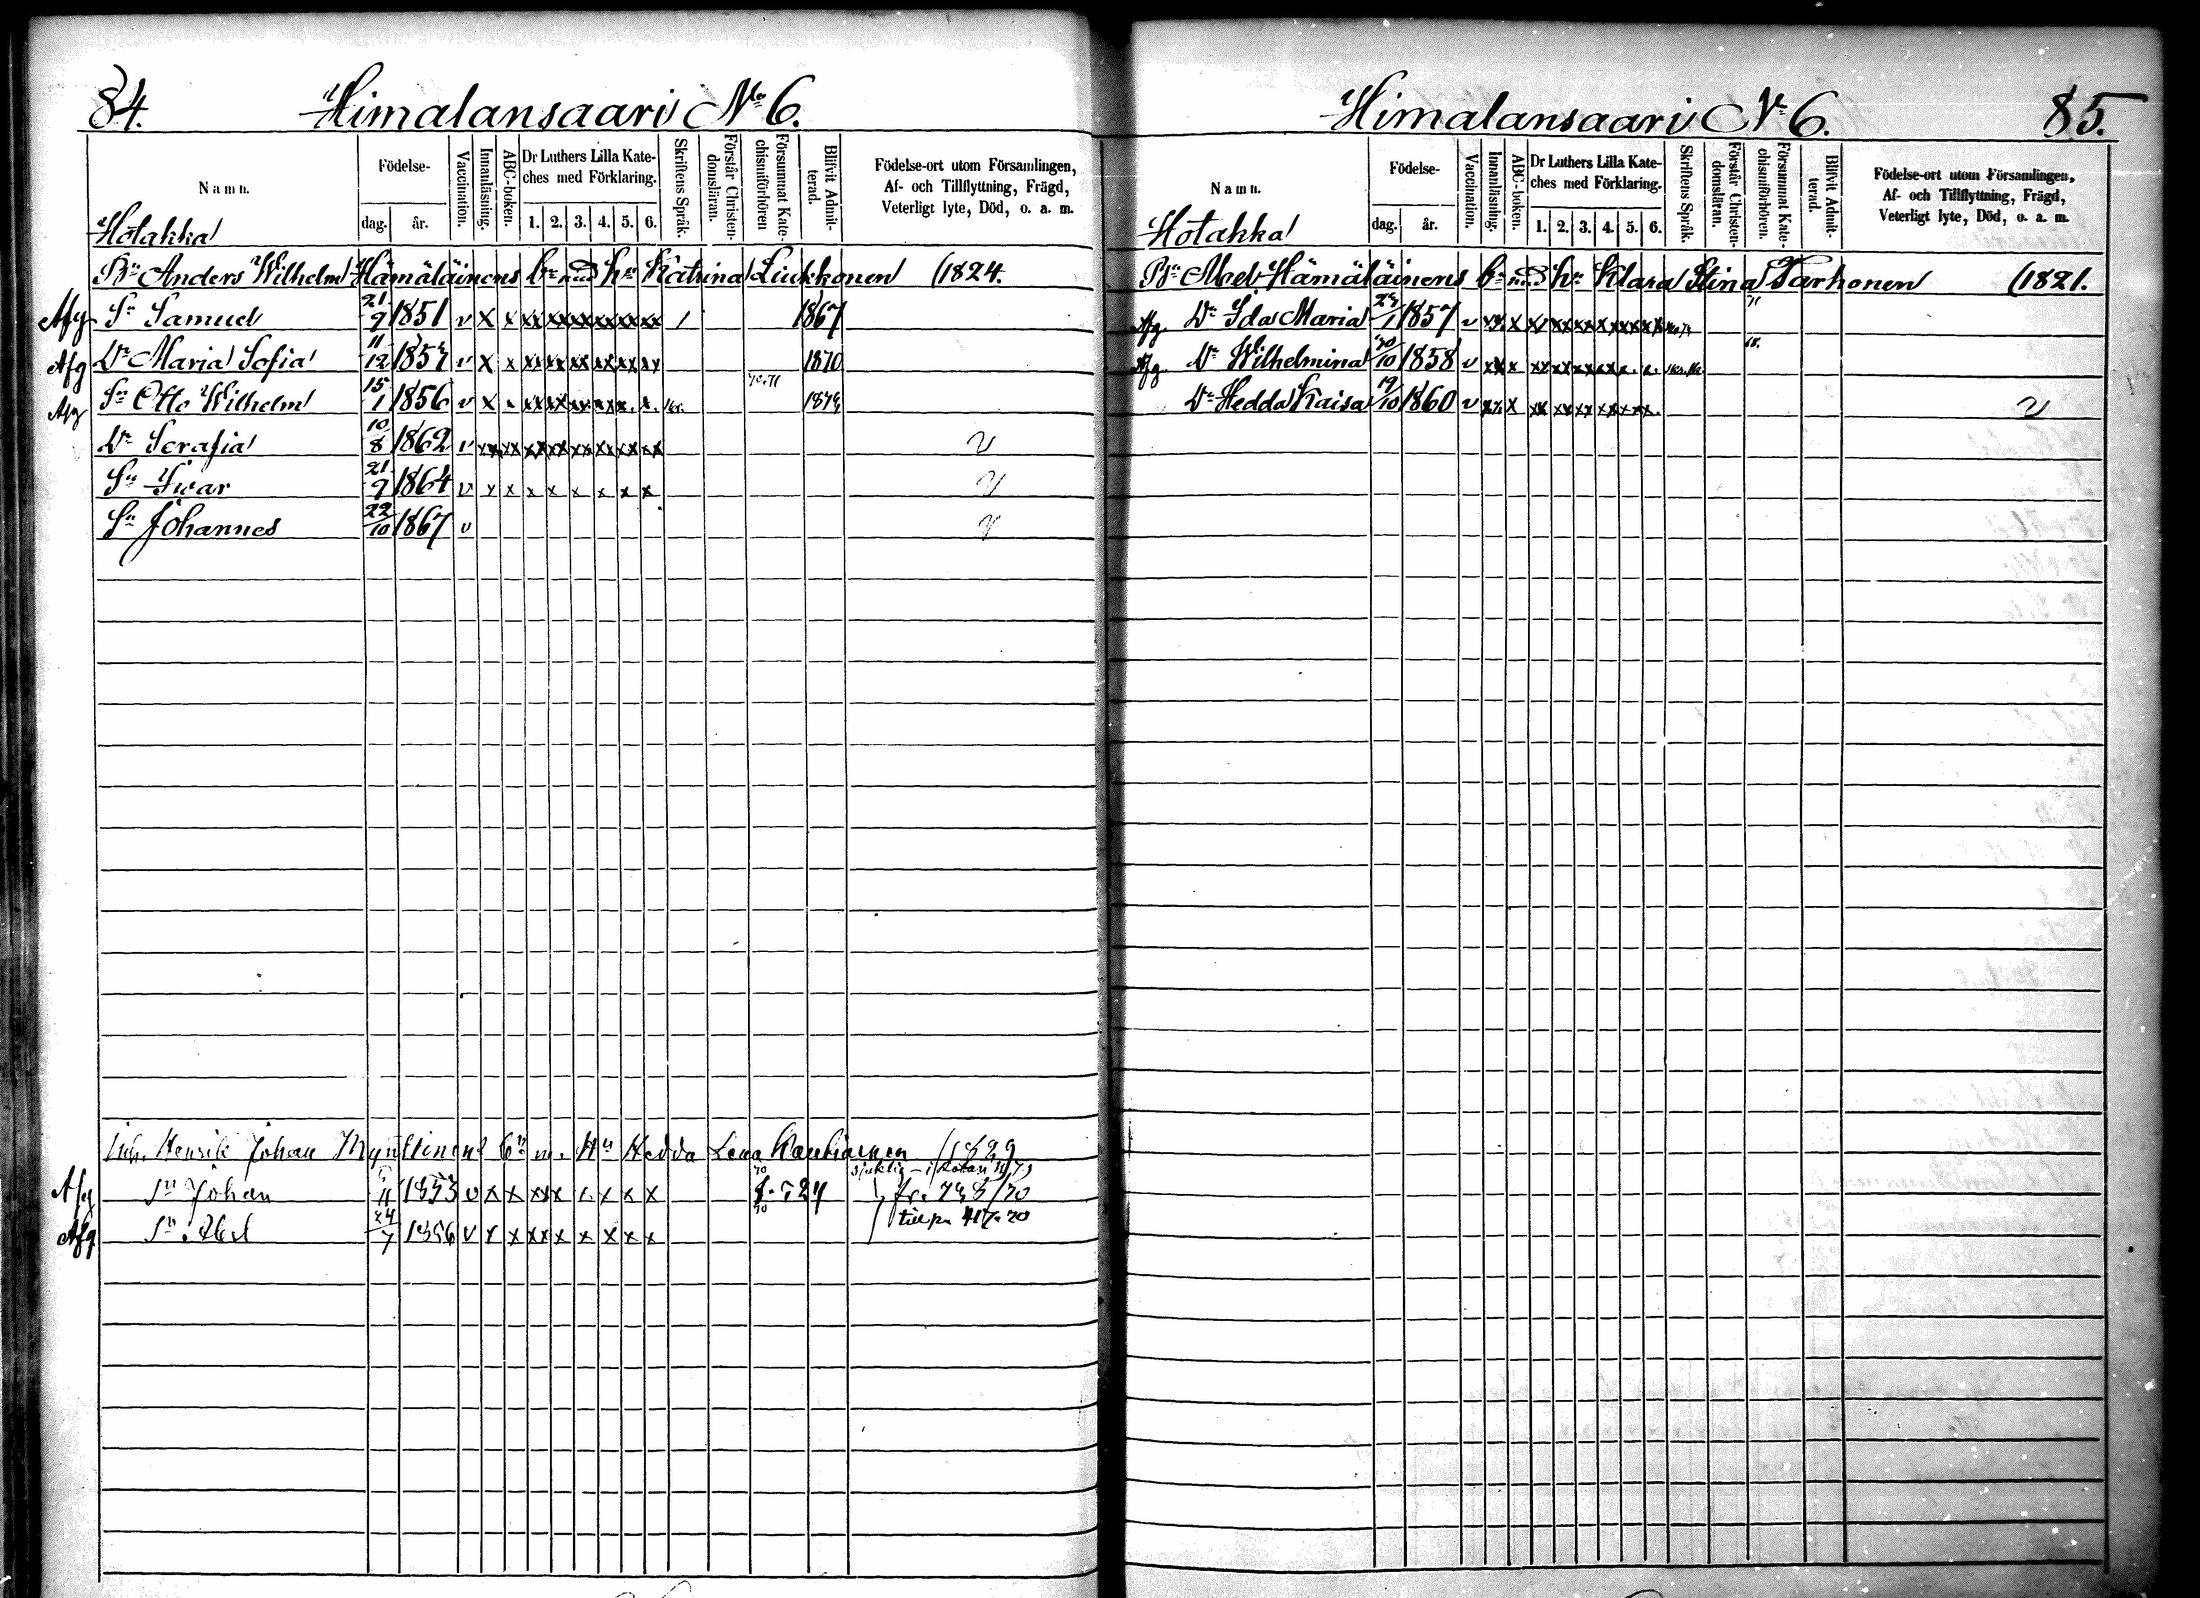 84. Himalansaari No 6.
Namn. Födelse- dag. år. Vaccination. Innanläsning. ABC-boken. Dr Luthers Lilla Kateches med Förklaring. 1. 2. 3. 4. 5. 6. Skriftens Språk. Förstår Christendomsläran. Försummat Katechismiförhören Blifvit Admitterad. Födelse-ort utom Församlingen, Af- och Tillflyttning, Frägd, Veterligt lyte, Död, o. a. m.
Hotakka
Bn Anders Wilhelm Hämäläinens bn med hu Katrina Liukkonen (1824.
Afg Sn Samuel 21/9 1851 v x x xx xx xx xx xx xx 1 1867
Afg Dr Maria Sofia 11/12 1857 v x x xx xx xx xx xx xx 1870
Afg Sn Otto Wilhelm 15/1 1856 v x x xx xx xx xx x. x. 70.71
Dr Serafia 10/8 1862 v xx xx xx xx xx xx xx xx v
Sn Iwar 21/9 1864 v x x x x x x x x v
Sn Johannes 22/10 1867 v v
Inh. Henrik Johan Mynttinens bn m. Hu Hedda Lena
Afg Sn Johan 1853 v x x xx x x x x fr. 738/70
Afg Sn Abel 24/7 1856 v x x xx x x x x x till p. 417. 70
Himalansaari No 6. 85.
Namn. Födelse- dag. år. Vaccination. Innanläsning. ABC-boken. Dr Luthers Lilla Kateches med Förklaring. 1. 2. 3. 4. 5. 6. Skriftens Språk. Förstår Christendomsläran. Försummat Katechismiförhören. Blifvit Admitterad. Födelse-ort utom Församlingen, Af- och Tillflyttning, Frägd, Veterligt lyte, Död, o. a. m.
Hotakka
Bn Abel Hämäläinens bn med hu Klara Stina Tarhonen (1821.
Afg. Dr Ida Maria 1857 v xx x xx xx xx xx xx xx 71
Afg. Dr Wilhelmina 30/10 1858 v xx x xx xx xx xx x. x. 68.
Dr Hedda Kaisa 19/10 1860 v xx x xx xx xx xx xx v